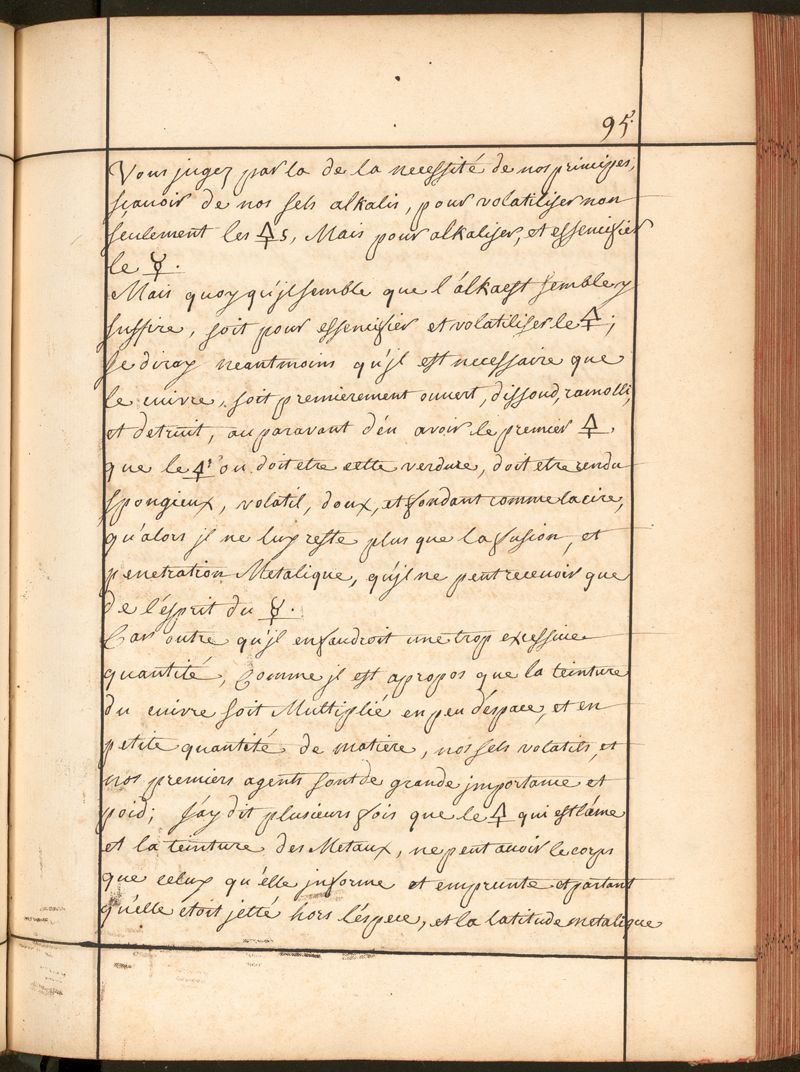 95.
Vous jugez par la de la necessité de nos principes,
sçauoir de nos sels alkalis, pour volatiliser non
seulement les 🜍s, Mais pour alkaliser, et essencifier
le ☿.
Mais quoy qu'jl semble que l'alkaest semble y
suffire, soit pour essencifier et volatiliser le 🜍;
Je diray neantmoins qu'jl est necessaire que
le cuivre, soit premierement ouvert, dissoud, ramolli,
et detruit, au paravant d'en avoir le premier 🜍.
que le 🜍 ou doit etre cette verdure, doit etre rendu
spongieux, volatil, doux, et fondant comme la cire,
qu'alors jl ne luy reste plus que la fusion, et
penetration Metalique, qu'jl ne peut recevoir que
de l'esprit du ☿.
Car outre qu'jl en faudroit une trop excessive
quantité, Comme jl est apropos que la teinture
du cuivre soit Multiplié en peu d'espace, et en
petite quantité de matiere, nos sels volatils, et
nos premiers agents sont de grande jmportance et
poid; J'ay dit plusieurs fois que le 🜍 qui est l'ame
et la teinture des Metaux, ne peut avoir le corps
que celuy qu'elle jnforme et emprunte et partant
qu'elle étoit jetté hors l'espece, et la latitude metalique